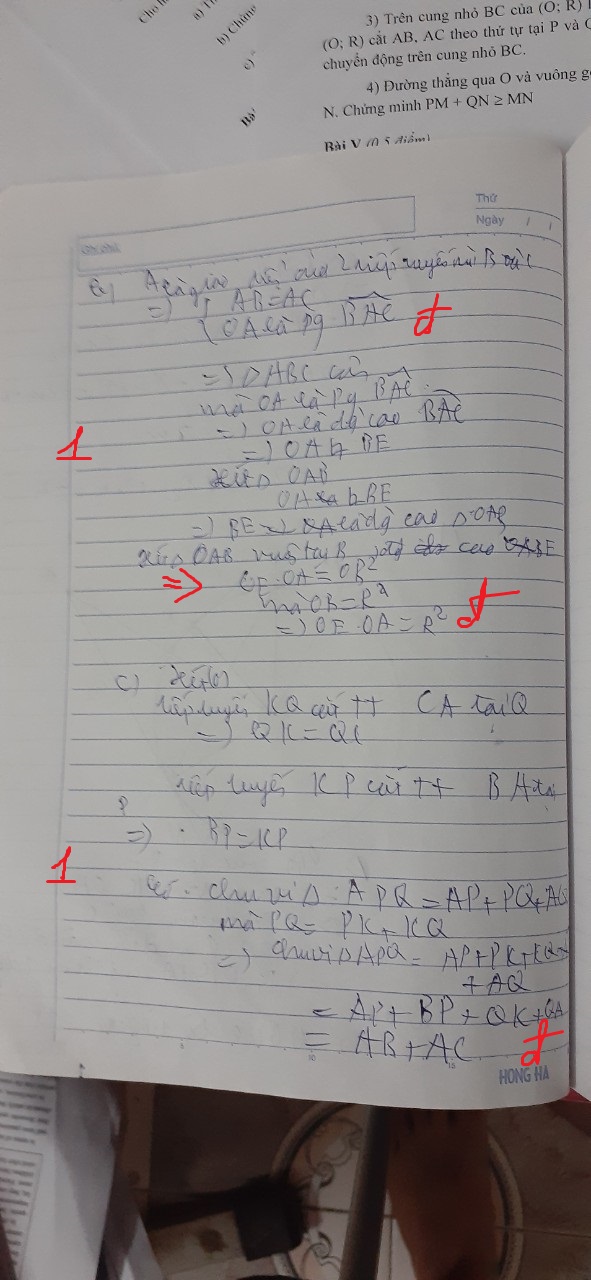 Cho
a)
b) Chứng
c)
Bà
3) Trên cung nhỏ BC của (O; R)
(O; R) cắt AB, AC theo thứ tự tại P và
chuyển động trên cung nhỏ BC.
4) Đường thẳng qua O và vuông g
N. Chứng minh PM + QN ≥ MN
Bài V (0,5 điểm)
Thứ
Ngày / /
A là giao của 2 tiếp tuyến B
=> { AB=AC
{ OA là pg BAC đ
=> Δ ABC cân
mà OA là pg BAC.
1 => OA là đg cao BAC
=> OA ⊥ BE
xét Δ OAB
OA ⊥ BE
=> BE là đg cao Δ OAB
xét Δ OAB B cao BE
=> OE . OA = OB²
mà OB = R²
=> OE . OA = R² đ
c) Xét (O)
tiếp tuyến KQ cắt tt CA tại Q
=> QK = QC
tiếp tuyến KP cắt tt BA tại
P
=> . BP = KP
1 chu vi Δ APQ = AP + PQ + AQ
mà PQ = PK + KQ
=> chu vi Δ APQ = AP + PK + KQ
+ AQ
= AP + BP + QK + QA
= AB + AC đ
HONG HA